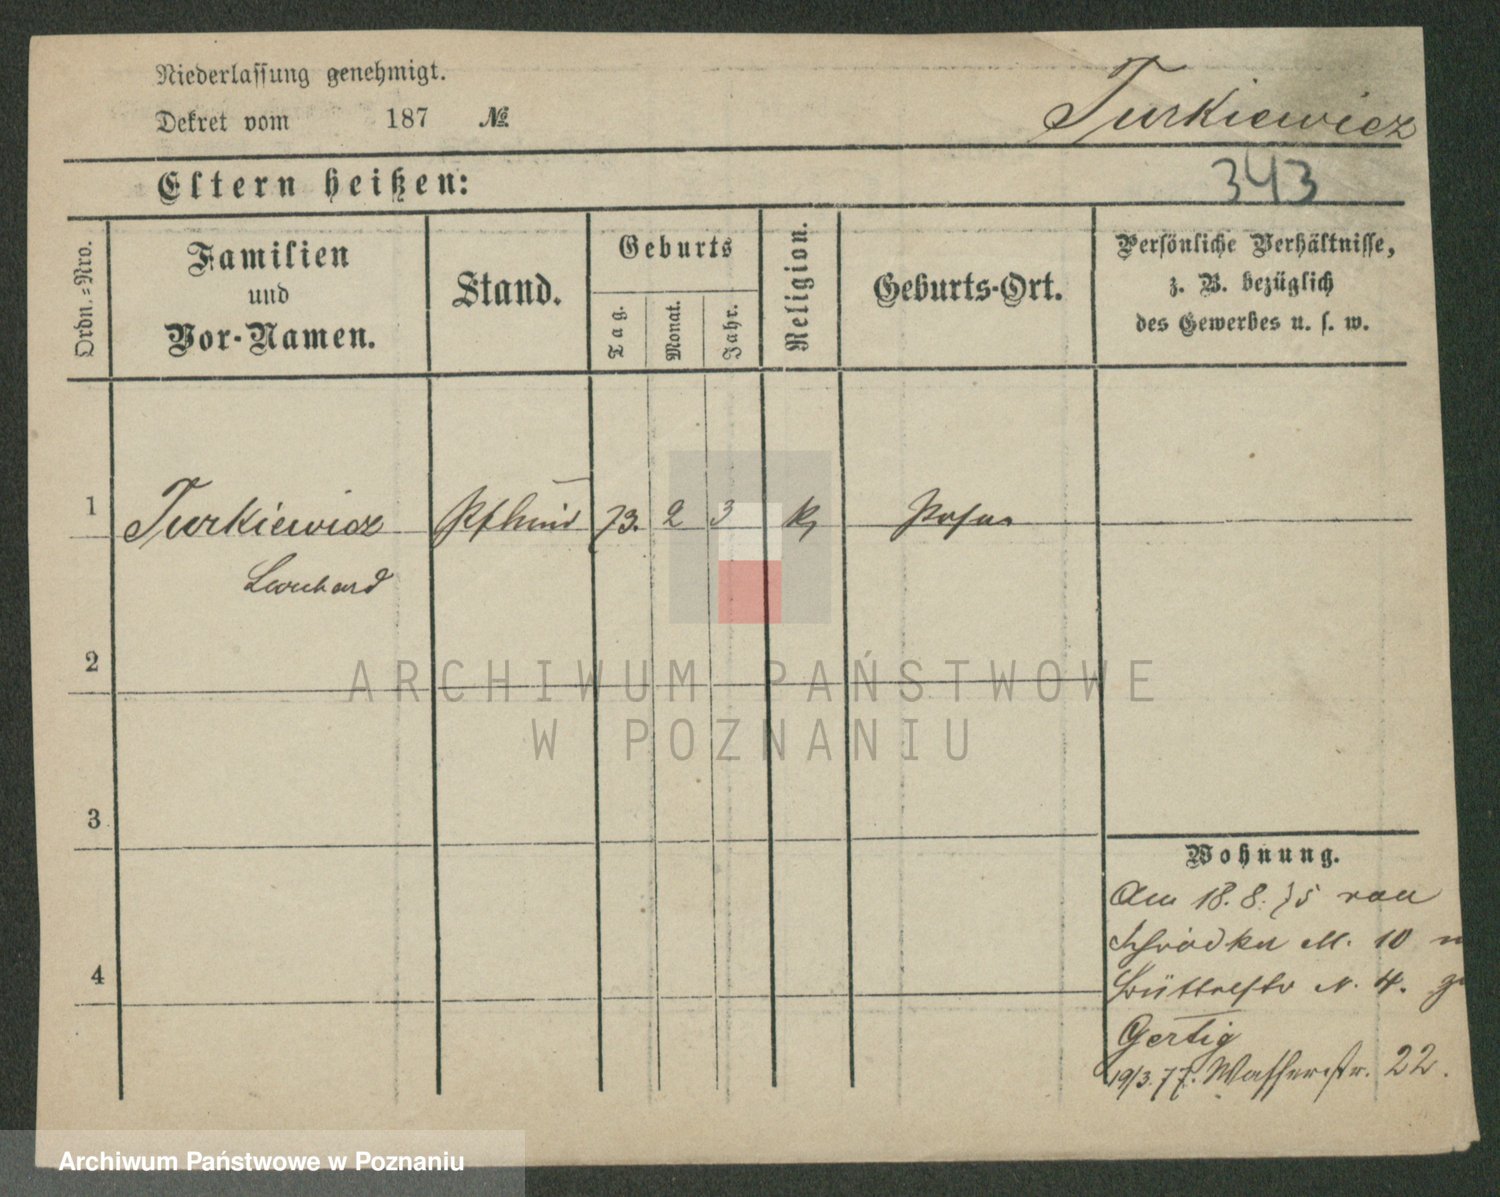 Niederlassung genehmigt.
Dekret vom 187 №
Turkiewicz
343
Eltern heißen:
Ordn.-Nro.
Familien
und
Vor-Namen.
Stand.
Geburts
Tag.
Monat.
Jahr.
Religion.
Geburts-Ort.
Persönliche Verhältnisse,
z. B. bezüglich
des Gewerbes u. s. w.
1 Turkiewicz 2 3 k Posen
Leonhard
2
3
4
Wohnung.
Am 18. 8. 75 von
Schrodka N. 10 n
Büttelstr N. 4. z
Gertig
19/3. 77. Wasserstr. 22.
ARCHIWUM PAŃSTWOWE
W POZNANIU
Archiwum Państwowe w Poznaniu